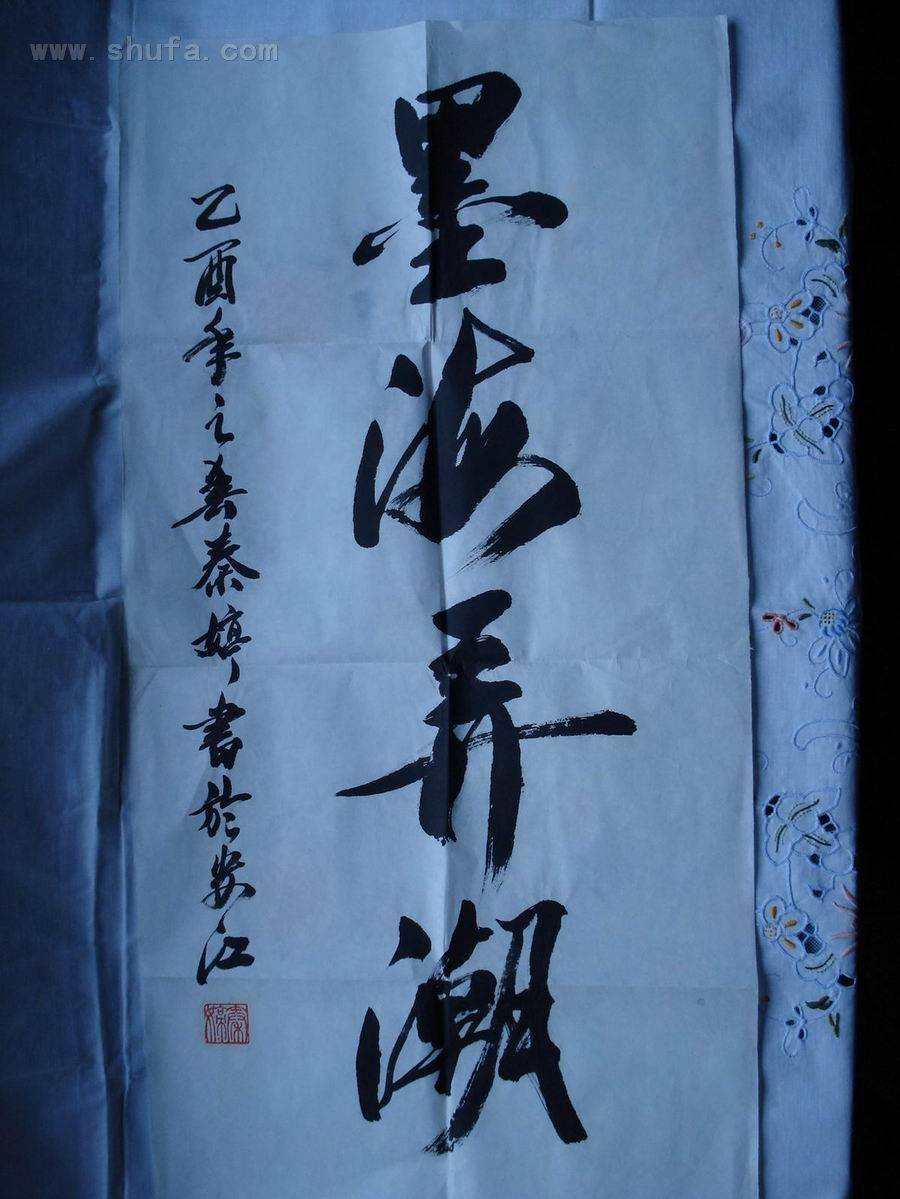 www.shufa.com
墨海弄潮
乙酉年之春秦婷書於安江